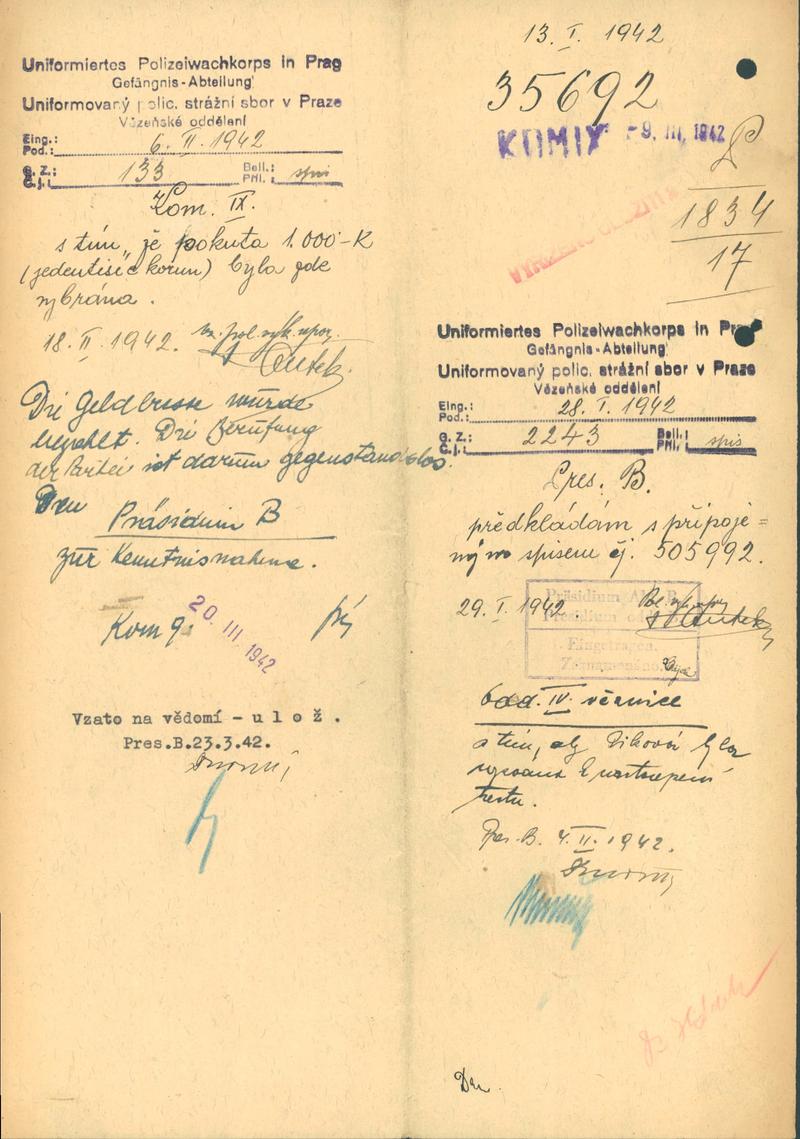 Uniformiertes Polizeiwachkorps in Prag
Gefängnis-Abteilung
Uniformovaný polic. strážní sbor v Praze
Vězeňské oddělení
Eing.:
Pod.: 6. II. 1942
G. Z.:
Č. j.: 133 Beil.:
Příl.: spis
Kom. IX.
s tím, že pokuta 1.000-K
(jedentisíc korun) byla zde
vybrána.
18. II. 1942.
Die Geldbusse wurde
bezahlt. Die Berufung
der Partei ist darum gegenstandslos.
Dem
Präsidium B
zur Kenntnisnahme.
Kom 9.
20. III. 1942
Vzato na vědomí - u l o ž .
Pres.B.23.3.42.
13. I. 1942
35692
KOM IX - 9. III. 1942
1834
17
Uniformiertes Polizeiwachkorps in Prag
Gefängnis-Abteilung
Uniformovaný polic. strážní sbor v Praze
Vězeňské oddělení
Eing.:
Pod.: 28. I. 1942
G. Z.:
Č. j.: 2243 Beil.:
Příl.: spis
Pres. B.
předkládám s připoje=
ným spisem čj. 505992.
29. I. 1942
Präsidium Abt. B
Eingetragen.
Zaznamenáno.
odd. IV. věznice
s tím, aby byla
vyzvána k nastoupení
trestu.
Pres. B. 4. II. 1942.